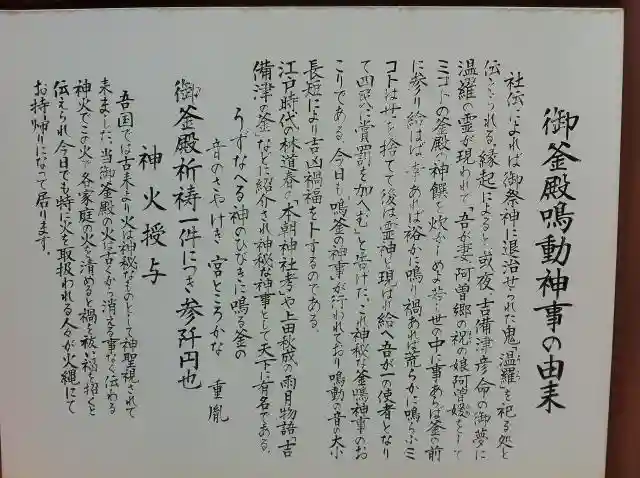 御釜殿鳴動神事の由来
社伝によれば御祭神に退治せられた鬼「温羅」を祀る処と
伝えられる。縁起によると或夜、吉備津彦命の御夢に
温羅の霊が現われて、吾が妻、阿曽郷の祝の娘阿曽媛をして
ミコトの釜殿の神饌を炊がしめよ。若し世の中に事あらば釜の前
に参り給はば幸あれば裕かに鳴り禍あれば荒らかに鳴らふミ
コトは世を捨てて後は霊神と現はれ給へ吾が一の使者となり
て四民に賞罰を加へむ」と告げた。これ神秘な釜鳴神事のお
こりである。今日も鳴釜の神事が行われており鳴動の音の大小
長短により吉凶禍福を卜するのである。
江戸時代の林道春の「本朝神社考」や上田秋成の雨月物語「吉
備津の釜」などに紹介され神秘な神事として天下に有名である。
うずなへる神のひびきに鳴る釜の
音のさやけき宮ところかな 重胤
御釜殿祈祷一件につき参阡円也
神火授与
吾国では古来より火は神秘なものとして神聖視されて
来ました。当御釜殿の火は古くから消える事なく伝わる
神火でこの火で各家庭の火を清めると禍を祓い福を招くと
伝えられ今日でも特に火を取扱われる人々が火縄にて
お持帰りになって居ります。